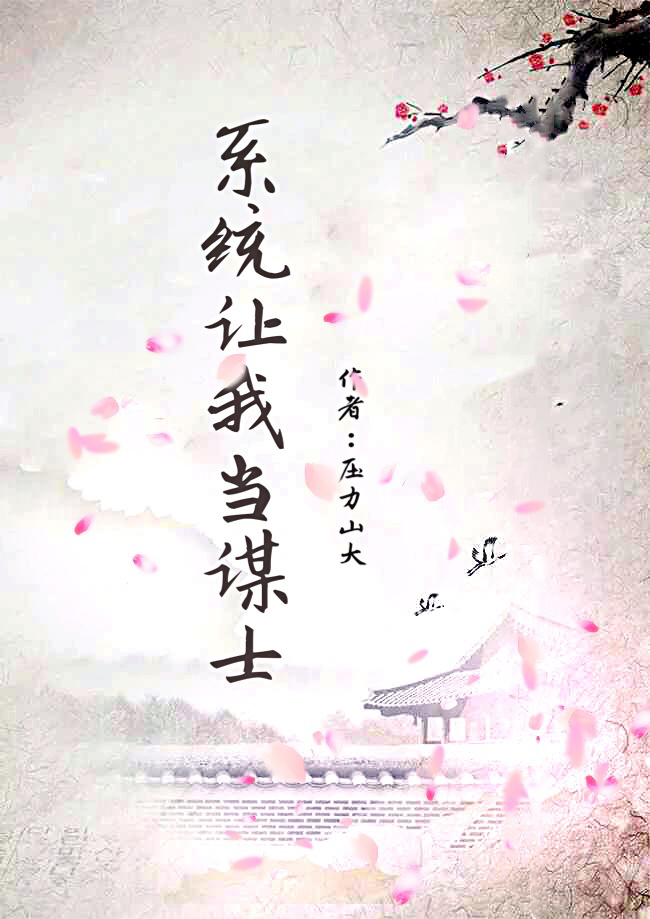 系统让我当谋士
作者：压力山大